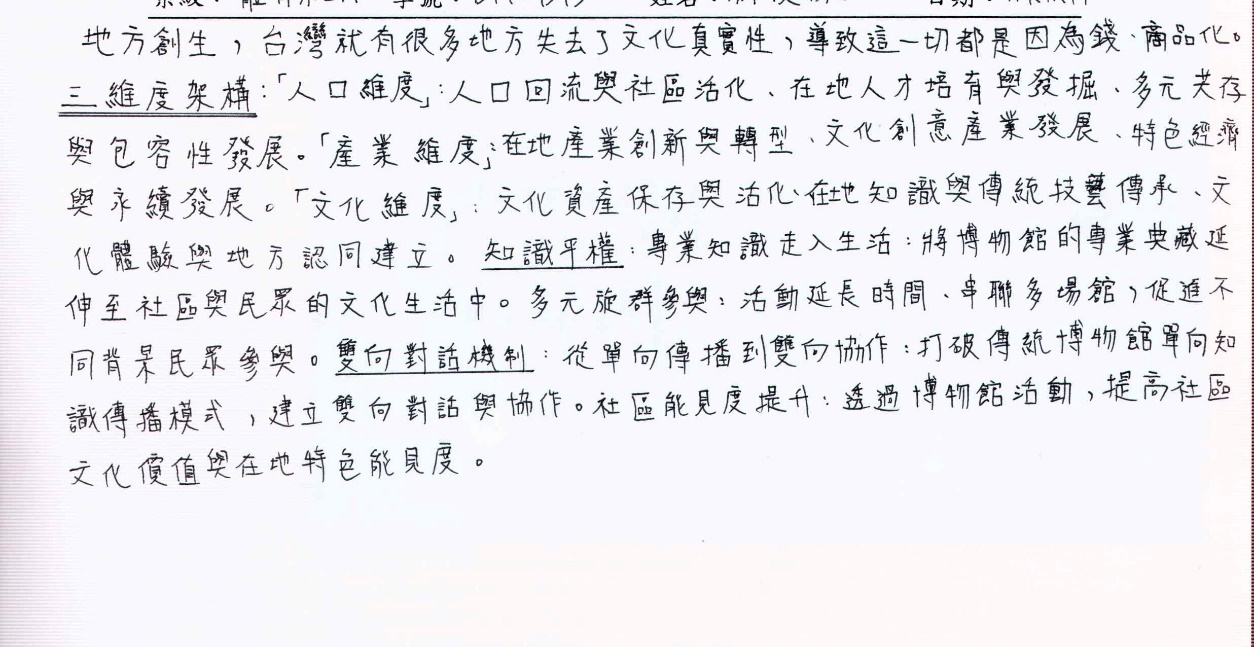 地方創生，台灣就有很多地方失去了文化真實性，導致這一切都是因為錢、商品化。
三維度架構：「人口維度」：人口回流與社區活化、在地人才培育與發掘、多元共存
與包容性發展。「產業維度」：在地產業創新與轉型、文化創意產業發展、特色經濟
與永續發展。「文化維度」：文化資產保存與活化、在地知識與傳統技藝傳承、文
化體驗與地方認同建立。知識平權：專業知識走入生活：將博物館的專業典藏延
伸至社區與民眾的文化生活中。多元族群參與：活動延長時間、串聯多場館，促進不
同背景民眾參與。雙向對話機制：從單向傳播到雙向協作：打破傳統博物館單向知
識傳播模式，建立雙向對話與協作。社區能見度提升：透過博物館活動，提高社區
文化價值與在地特色能見度。